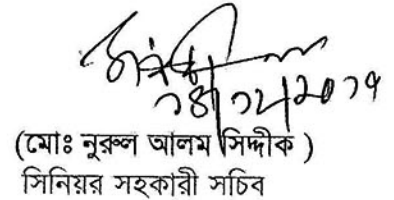 ১৪/১২/২০১৭
(মোঃ নুরুল আলম সিদ্দীক )
সিনিয়র সহকারী সচিব